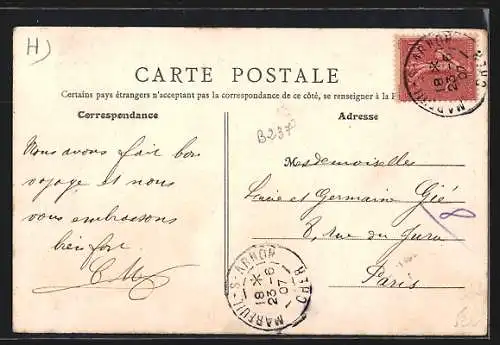 H)
CARTE POSTALE
Certains pays étrangers n'acceptant pas la correspondance de ce côté, se renseigner à la
Correspondance
Adresse
B2370
Nous avons fait bon
voyage et nous
vous embrassons
bien fort
CM
Mesdemoiselles
Lucie et Germain Gié
8, rue du Jura
Paris
8
MAREUIL-S-ARNON
18 *
23-6
07
CHER
MAREUIL-S-ARNON
18 *
23-6
07
CHER